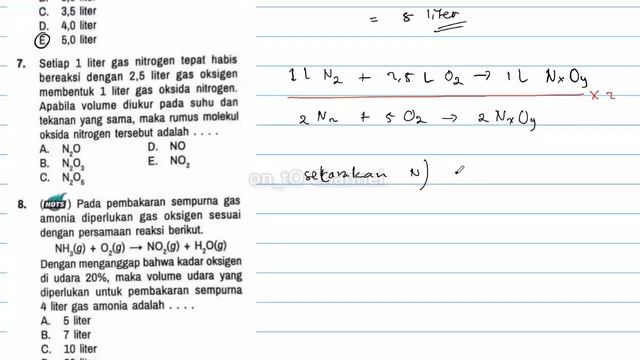 C. 3,5 liter
D. 4,0 liter
E. 5,0 liter
7. Setiap 1 liter gas nitrogen tepat habis
bereaksi dengan 2,5 liter gas oksigen
membentuk 1 liter gas oksida nitrogen.
Apabila volume diukur pada suhu dan
tekanan yang sama, maka rumus molekul
oksida nitrogen tersebut adalah . . . .
A. N₂O D. NO
B. N₂O₃ E. NO₂
C. N₂O₅
8. (HOTS) Pada pembakaran sempurna gas
amonia diperlukan gas oksigen sesuai
dengan persamaan reaksi berikut.
NH₃(g) + O₂(g) → NO₂(g) + H₂O(g)
Dengan menganggap bahwa kadar oksigen
di udara 20%, maka volume udara yang
diperlukan untuk pembakaran sempurna
4 liter gas amonia adalah . . . .
A. 5 liter
B. 7 liter
C. 10 liter
= 5 liter
1 L N₂ + 2,5 L O₂ → 1 L NxOy
× 2
2 N₂ + 5 O₂ → 2 NxOy
setarakan N)